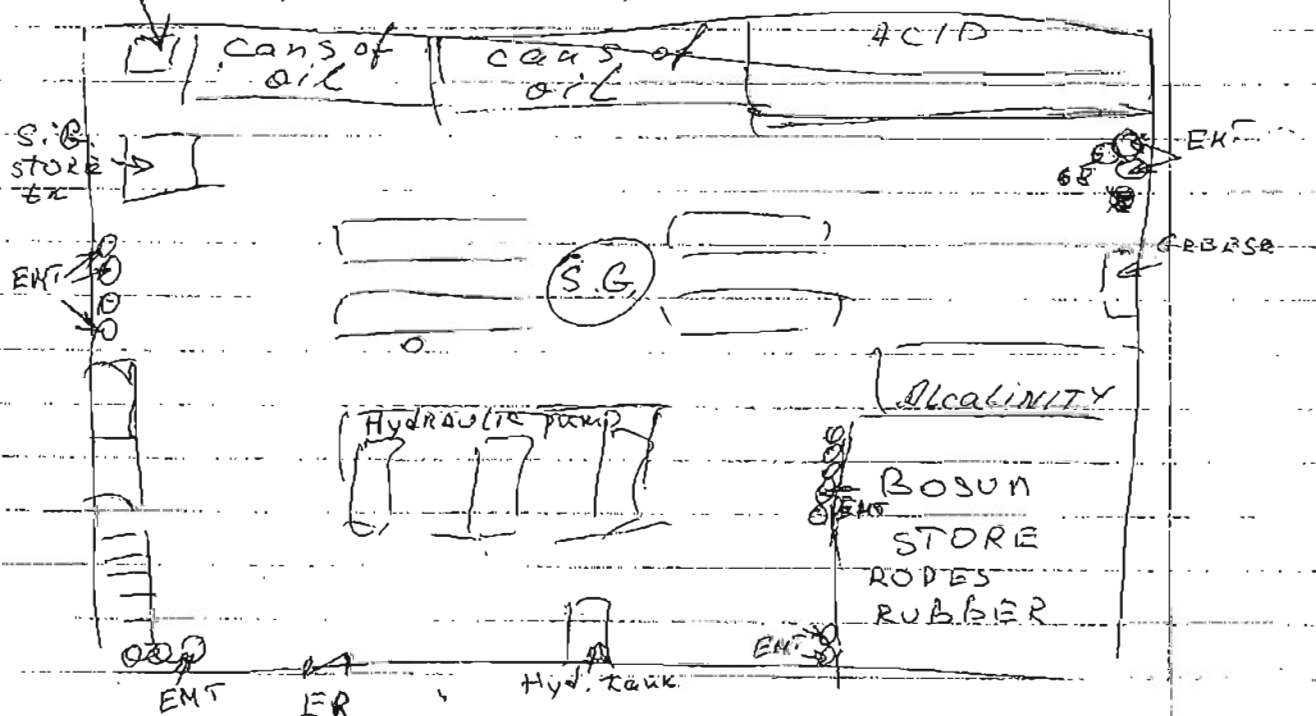 cans of
oil
cans of
oil
ACID
S.G.
STORE
EMT
68
GREASE
EMT
S.G.
ALCALINITY
HYDRAULIC PUMP
BOSUN
EMT
STORE
ROPES
RUBBER
EMT
EMT
ER
Hyd. tank